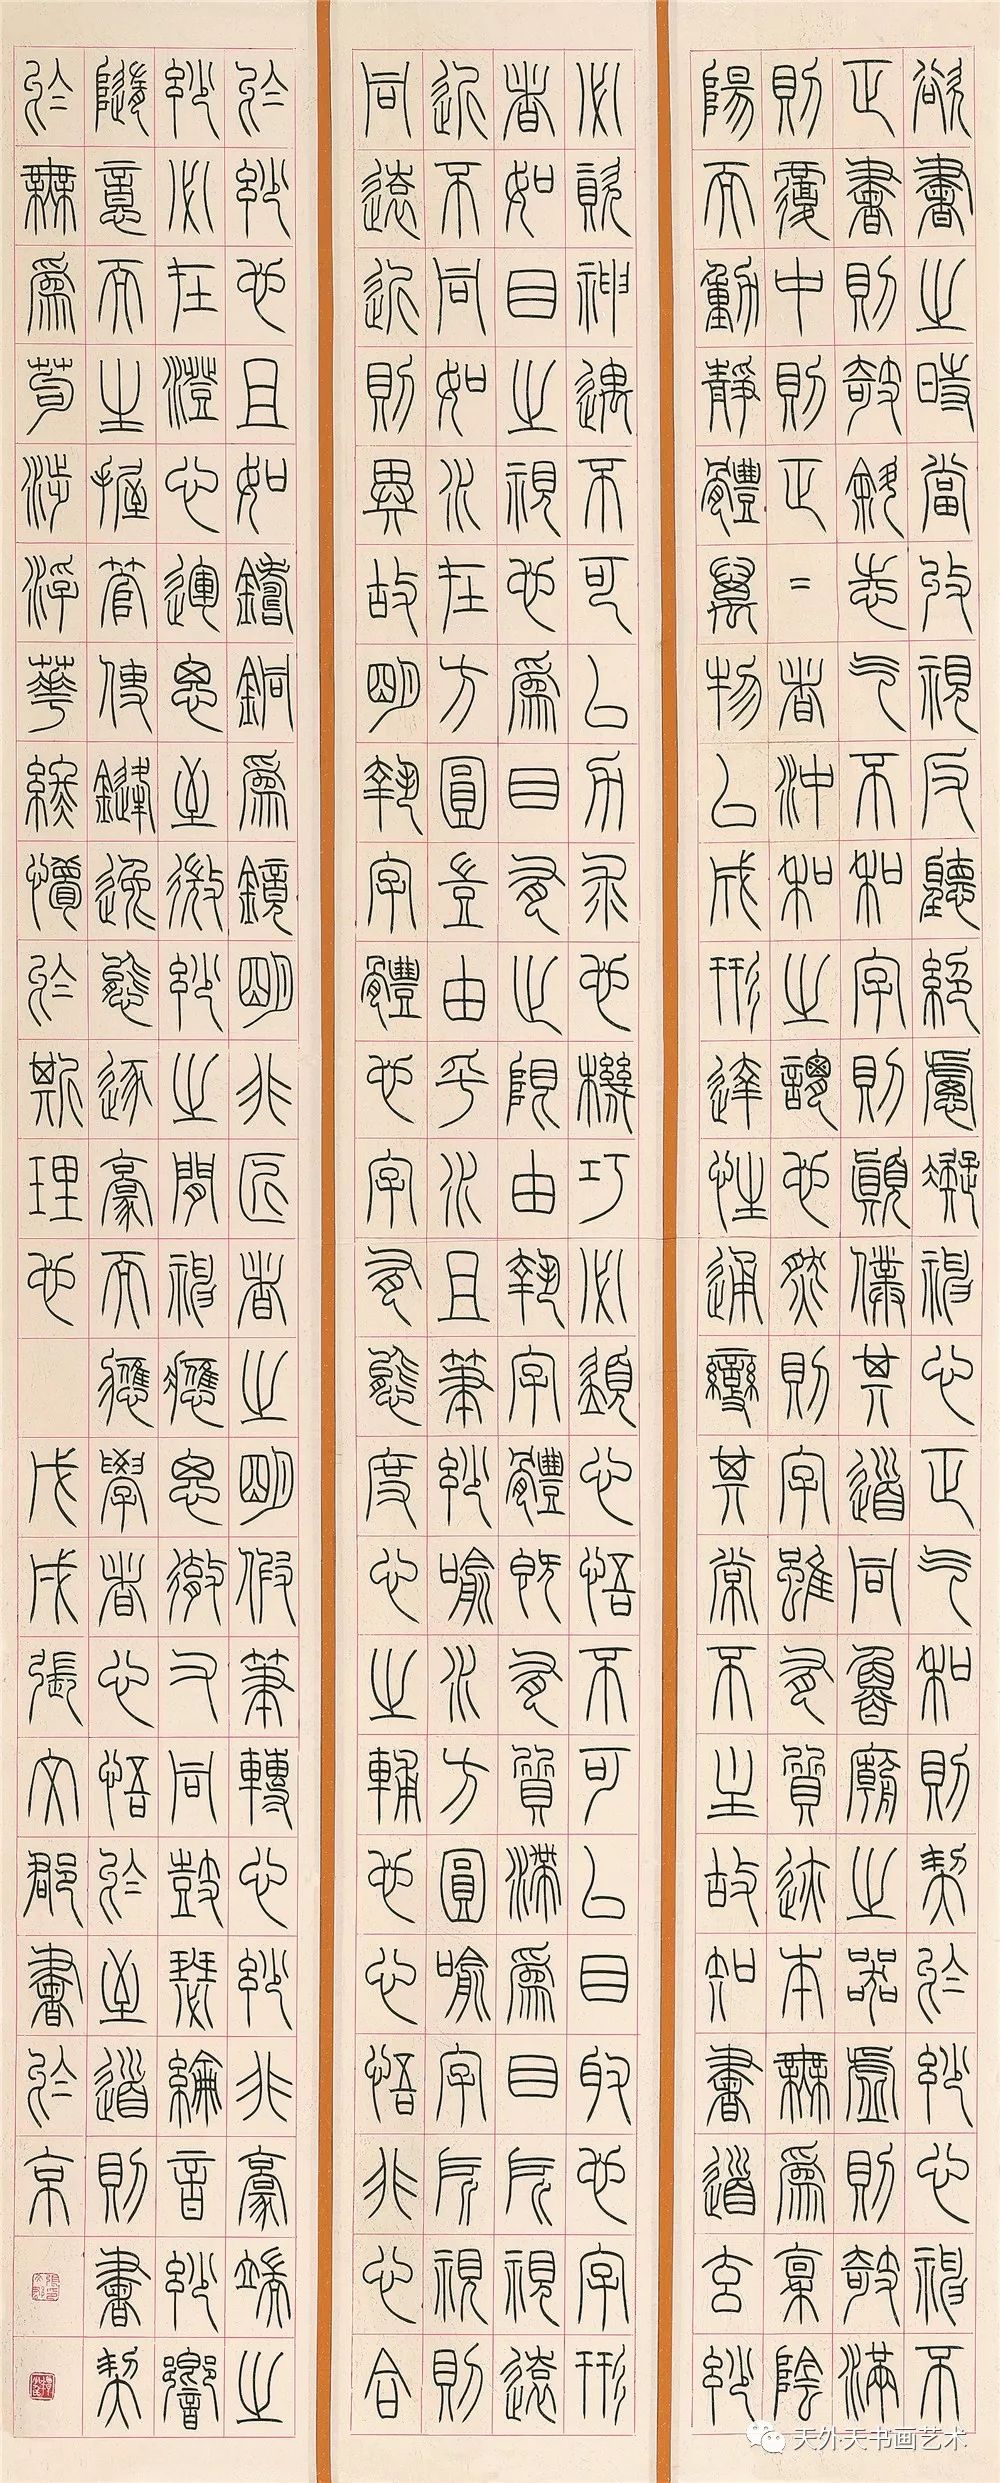 欲書之時當收視反聽絕慮凝神心正氣和則契於妙心神不
正書則攲斜志氣不和字則顛僕其道同魯廟之器虛則攲滿
則覆中則正=者沖和之謂也然則字雖有質迹本無為稟陰
陽而動靜體萬物以成形達性通變其常不主故知書道玄妙
必資神遇不可以力求也機巧必須心悟不可以目取也字形
者如目之視也為目有止限由執字體既有質滯為目所視遠
近不同如水在方圓豈由乎水且筆妙喻水方圓喻字所視則
同遠近則異故明執字體也字有態度心之輔也心悟非心合
於妙也且如鑄銅為鏡明非匠者之明假筆轉心妙非豪端之
妙必在澄心運思至微妙之間神應思徹又同鼓瑟綸音妙響
隨意而生握管使鋒逸態逐豪而應學者心悟於至道則書契
於無為苟涉浮華終懵於斯理也 戊戌張文郡書於京
天外天书画艺术